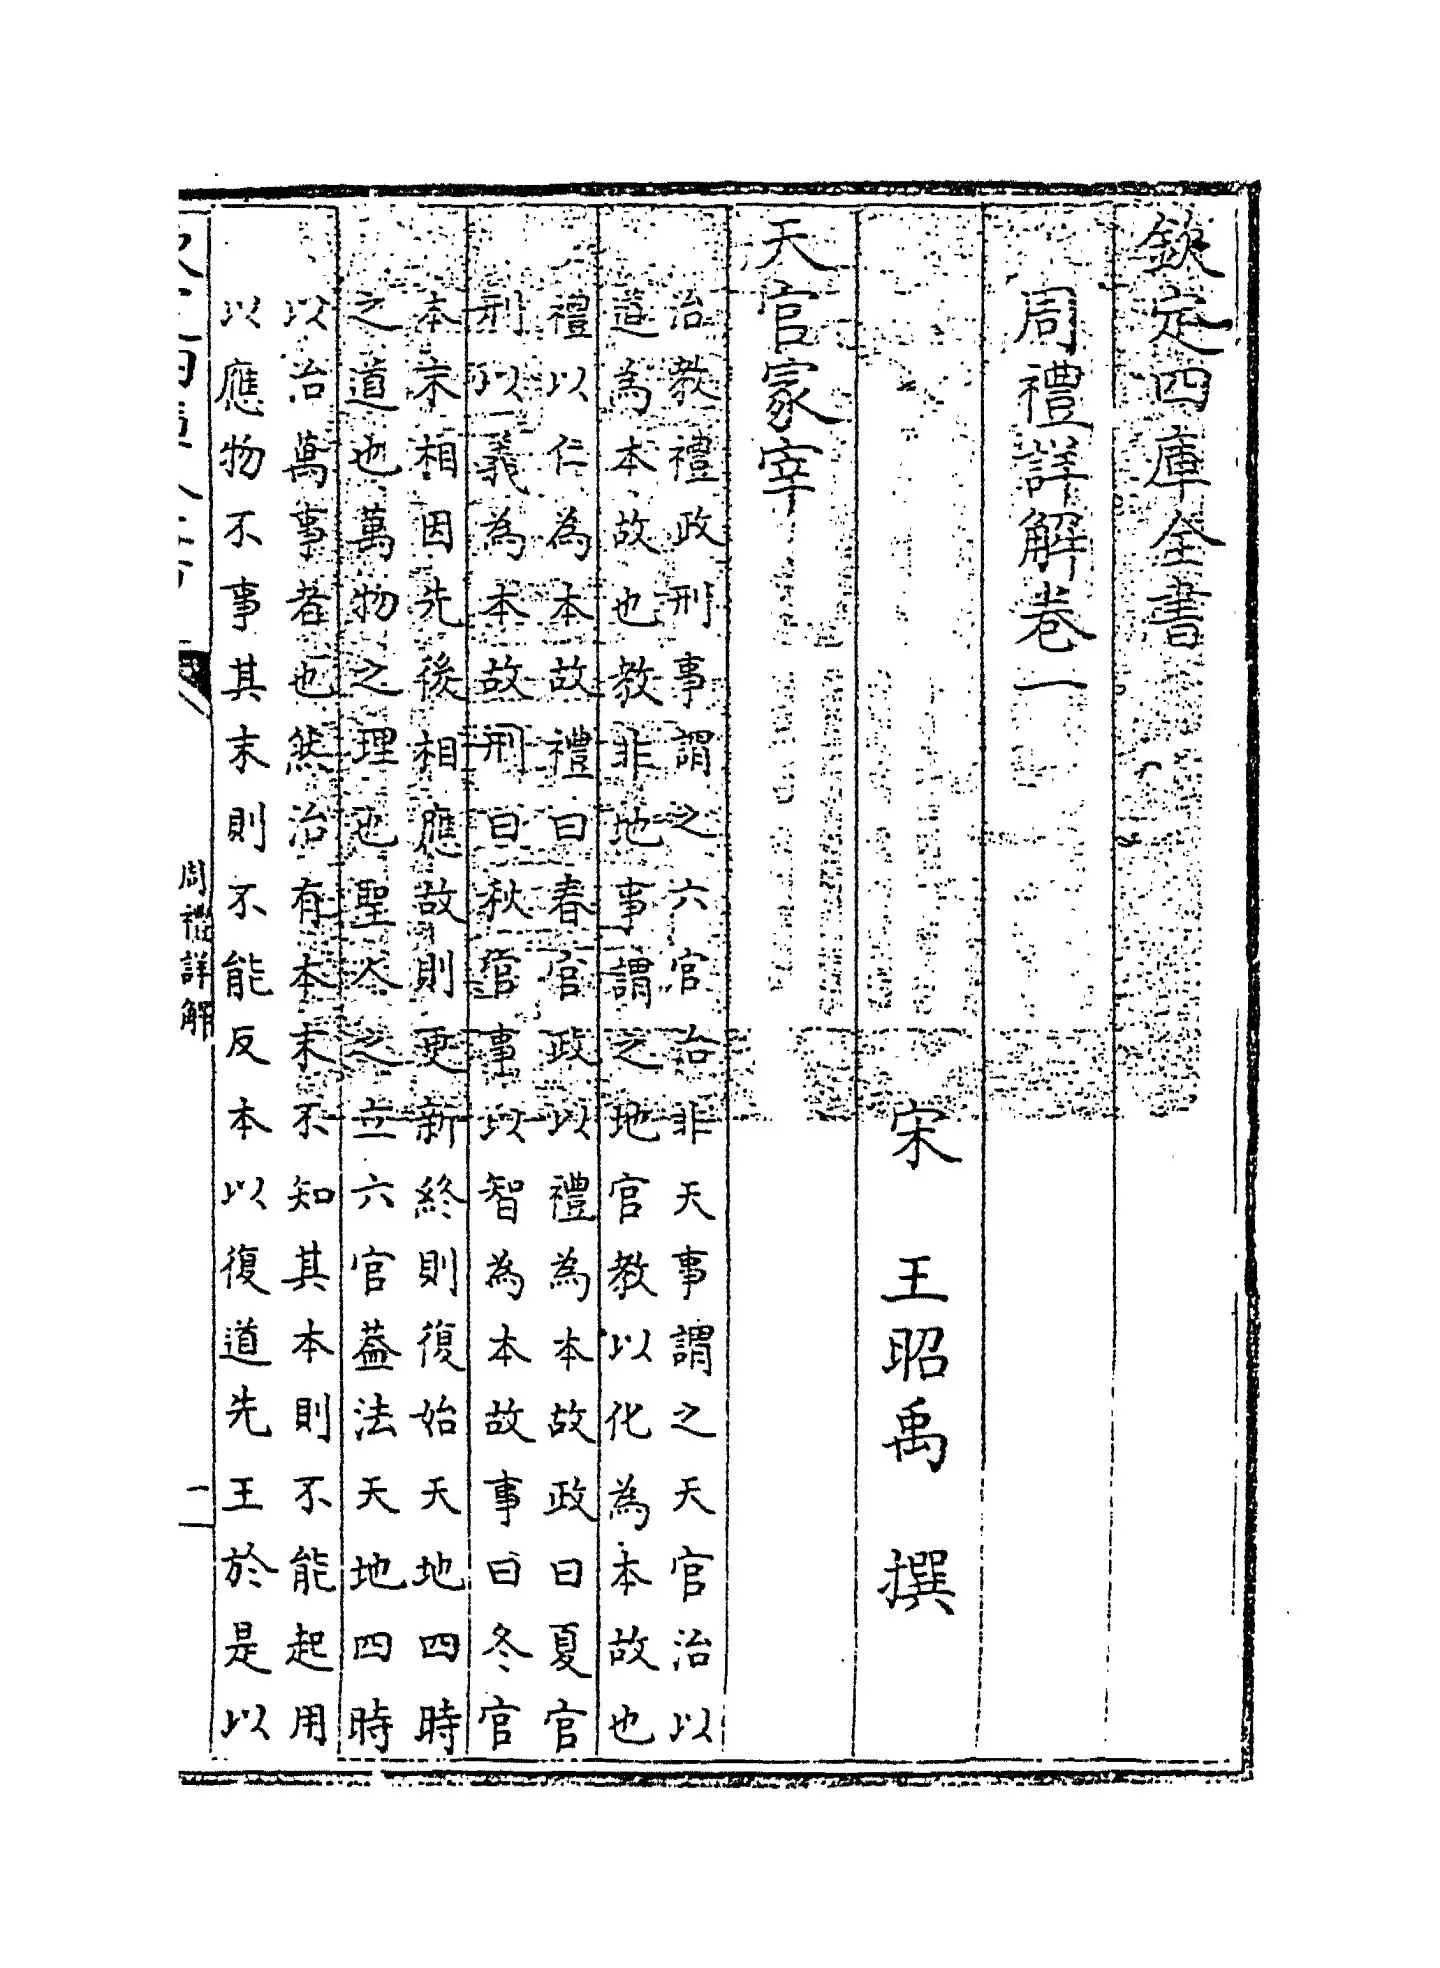 欽定四庫全書
周禮詳解卷一
宋 王昭禹 撰
天官冢宰
治教禮政刑事謂之六官治非天事謂之天官治以
道為本故也教非地事謂之地官教以化為本故也
禮以仁為本故禮曰春官政以禮為本故政曰夏官
刑以義為本故刑曰秋官事以智為本故事曰冬官
本末相因先後相應故則更新終則復始天地四時
之道也萬物之理也聖人之立六官蓋法天地四時
以治萬事者也然治有本末不知其本則不能起用
以應物不事其末則不能反本以復道先王於是以
周禮詳解
一